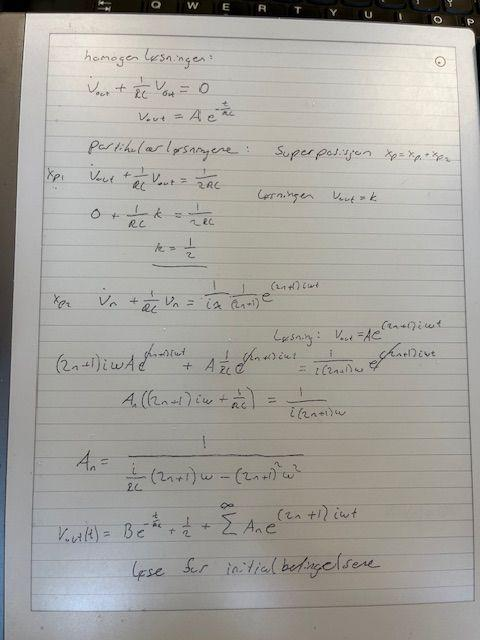 Q W E R T Y U I O P
homogen løsningen:
V̇out + 1/RC Vout = 0
Vout = A e^(-t/RC)
partikulær løsningene: Superposisjon xp = xp1 + xp2
xp1 V̇out + 1/RC Vout = 1/2RC
Løsningen Vout = k
0 + 1/RC k = 1/2RC
k = 1/2
xp2 V̇n + 1/RC Vn = 1/iπ 1/(2n+1) e^((2n+1)iωt)
Løsning: Vout = Ae^((2n+1)iωt)
(2n+1)iωAe^((2n+1)iωt) + A 1/RC e^((2n+1)iωt) = 1/i(2n+1)ω e^((2n+1)iωt)
An((2n+1)iω + 1/RC) = 1/i(2n+1)ω
An = 1/(i/RC (2n+1)ω - (2n+1)²ω²)
Vout(t) = Be^(-t/RC) + 1/2 + Σ^∞ An e^((2n+1)iωt)
løse for initialbetingelsene